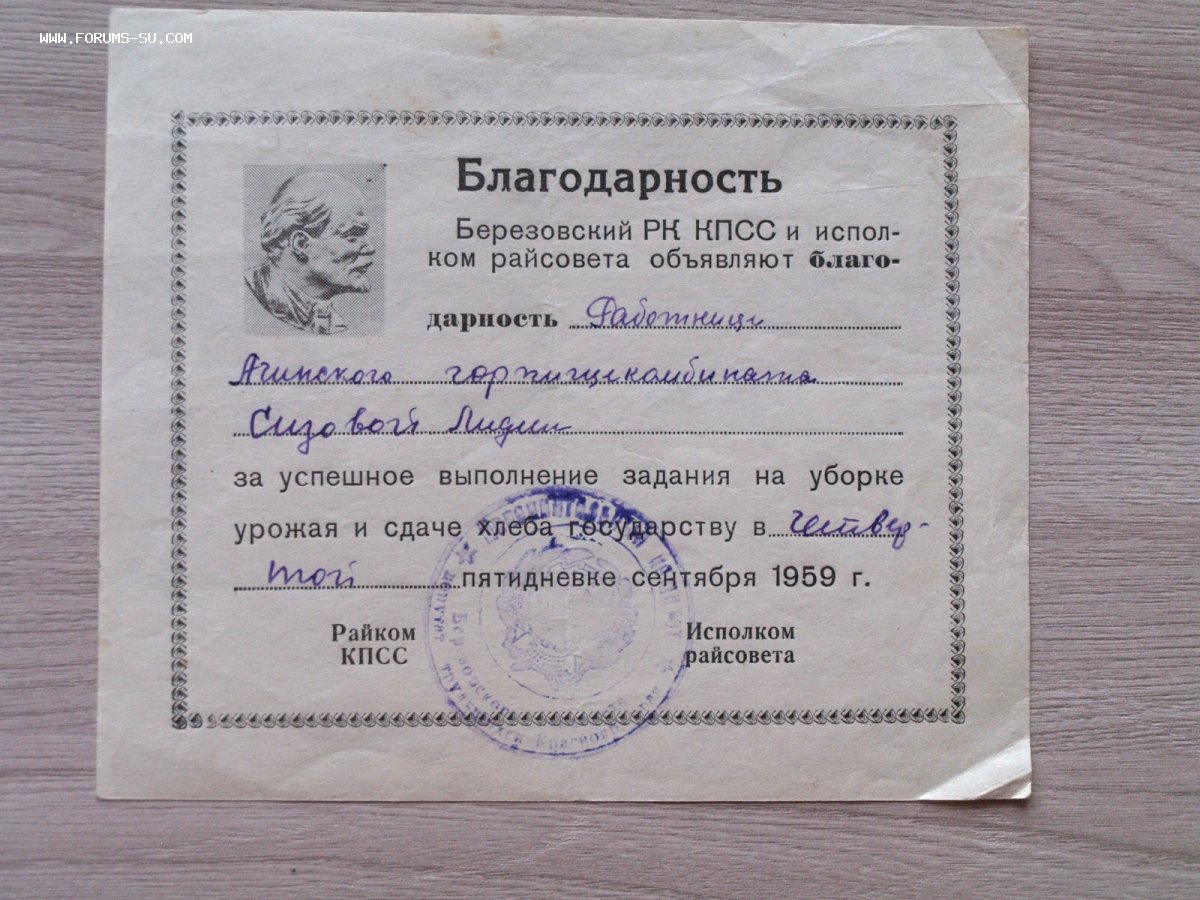 WWW.FORUMS-SU.COM
Благодарность
Березовский РК КПСС и испол-
ком райсовета объявляют благо-
дарность Работници
Ачинского горпищекомбината
Сизовой Лидии
за успешное выполнение задания на уборке
урожая и сдаче хлеба государству в четвер-
той пятидневке сентября 1959 г.
Райком
КПСС
Исполком
райсовета
трудящихся Красноярского